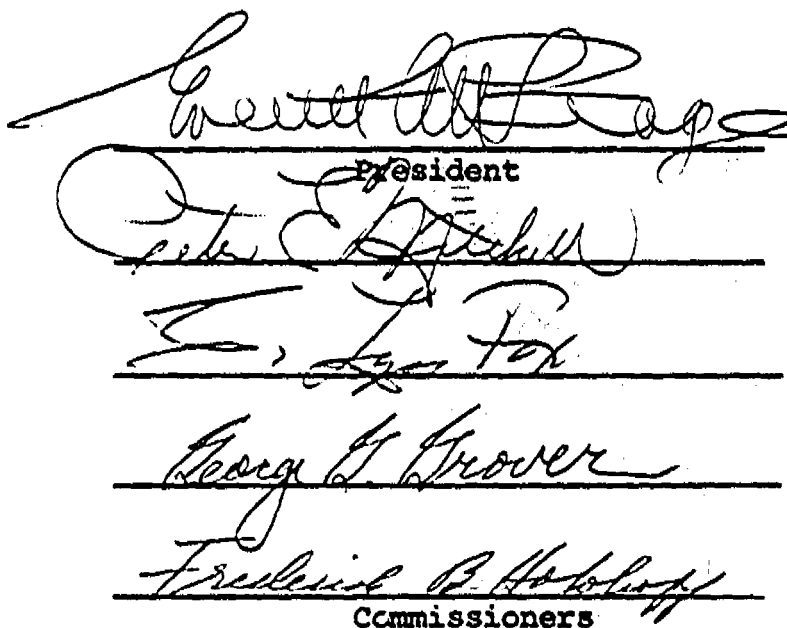 Everett
President
Peter E. Mitchell
Lyn Fox
George G. Grover
Frederick B. Holoboff
Commissioners